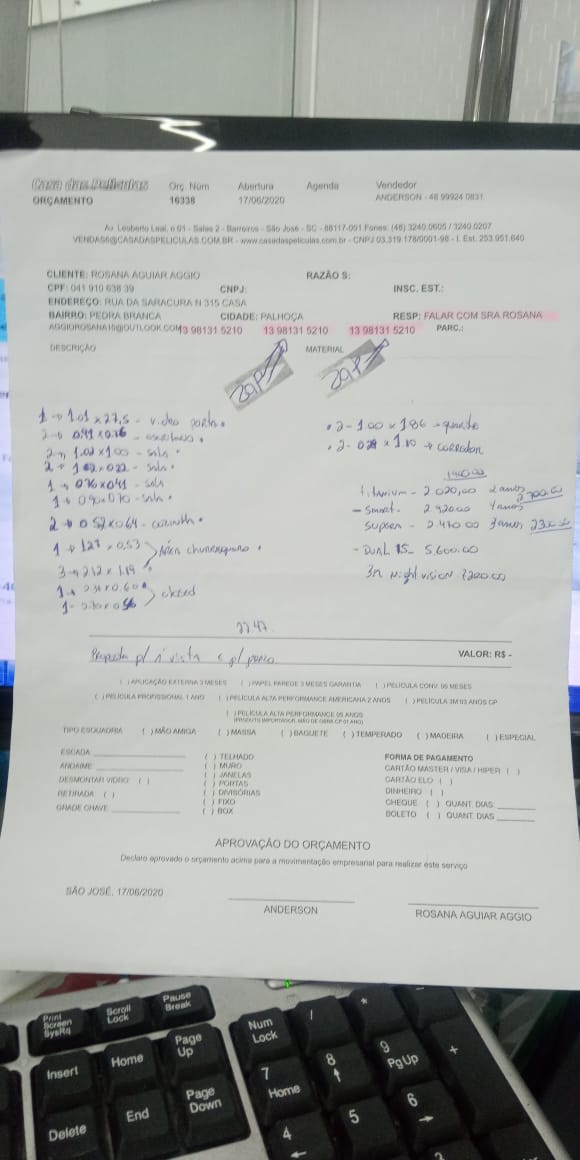 Casa das Películas Orç. Núm Abertura Agenda Vendedor
ORÇAMENTO 16338 17/06/2020 ANDERSON - 48 99924 0831
Av. Leoberto Leal, n 01 - Salas 2 - Barreiros - São José - SC - 88117-001 Fones: (48) 3240.0605 / 3240.0207
VENDAS6@CASADASPELICULAS.COM.BR - www.casadaspeliculas.com.br - CNPJ 03.319.178/0001-98 - I. Est. 253.951.640
CLIENTE: ROSANA AGUIAR AGGIO RAZÃO S:
CPF: 041 910 638 39 CNPJ: INSC. EST.:
ENDEREÇO: RUA DA SARACURA N 315 CASA
BAIRRO: PEDRA BRANCA CIDADE: PALHOÇA RESP: FALAR COM SRA ROSANA
AGGIOROSANA10@OUTLOOK.COM 13 98131 5210 13 98131 5210 13 98131 5210 PARC.:
DESCRIÇÃO MATERIAL
ZAP ZAP
1 → 1.01 x 27,5 - video porta . 2 - 100 x 186 - quarto
2 → 0,41 x - escritorio . 2 - x 1.10 → corredor
2 → 1.02 x 100 - sala
2 → 102 x 022 - sala
1 → 076 x 041 - sala Titanium - 2.020,00 2 anos
1 → 090 x 070 - sala - Smart - 2.420.00 4 anos
2 → 057 x 064 - cozinha Supren - 2.470.00 3 anos
1 → 127 x 0,53 Área churrasqueira - DUAL 15 - 5.600.00
3 → 212 x 1.19 3M Night vision 7200.00
1 → x 0.60
1 -
22.47
Proposta p/ a vista e p/ parc. VALOR: R$ -
( ) APLICAÇÃO EXTERNA 3 MESES ( ) PAPEL PAREDE 3 MESES GARANTIA ( ) PELICULA CONV. 06 MESES
( ) PELICULA PROFISSIONAL 1 ANO ( ) PELICULA ALTA PERFORMANCE AMERICANA 2 ANOS ( ) PELICULA 3M 03 ANOS CP
( ) PELICULA ALTA PERFORMANCE 05 ANOS
TIPO ESQUADRIA ( ) MÃO AMIGA ( ) MASSA ( ) BAGUETE ( ) TEMPERADO ( ) MADEIRA ( ) ESPECIAL
ESCADA ( ) TELHADO FORMA DE PAGAMENTO
ANDAIME ( ) MURO CARTÃO MASTER / VISA / HIPER ( )
DESMONTAR VIDRO ( ) ( ) JANELAS CARTÃO ELO ( )
RETIRADA ( ) ( ) PORTAS DINHEIRO ( )
GRADE CHAVE ( ) DIVISÓRIAS CHEQUE ( ) QUANT. DIAS
( ) FIXO BOLETO ( ) QUANT. DIAS
( ) BOX
APROVAÇÃO DO ORÇAMENTO
Declaro aprovado o orçamento acima para a movimentação empresarial para realizar este serviço
SÃO JOSÉ, 17/06/2020
ANDERSON ROSANA AGUIAR AGGIO
Print Screen SysRq Scroll Lock Pause Break
Insert Home Page Up Num Lock / *
Delete End Page Down 7 Home 8 9 PgUp +
4 5 6